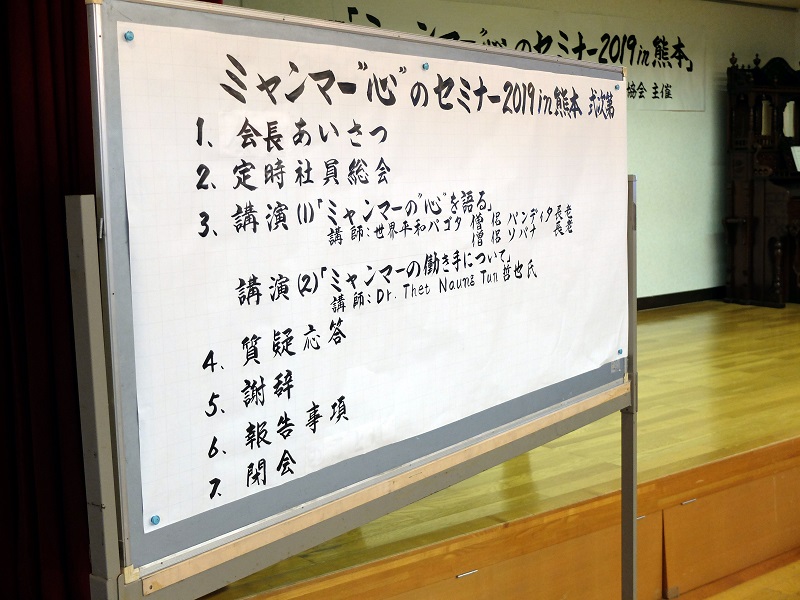 「ミャンマー"心"のセミナー2019in熊本」
協会 主催
ミャンマー"心"のセミナー2019in熊本 式次第
1、会長あいさつ
2、定時社員総会
3、講演(1)「ミャンマーの"心"を語る」
講師:世界平和パゴダ 僧侶 パンディタ 長老
僧侶 ソバナ 長老
講演(2)「ミャンマーの働き手について」
講師:Dr. Thet Naung Tun 哲也氏
4、質疑応答
5、謝辞
6、報告事項
7、閉会